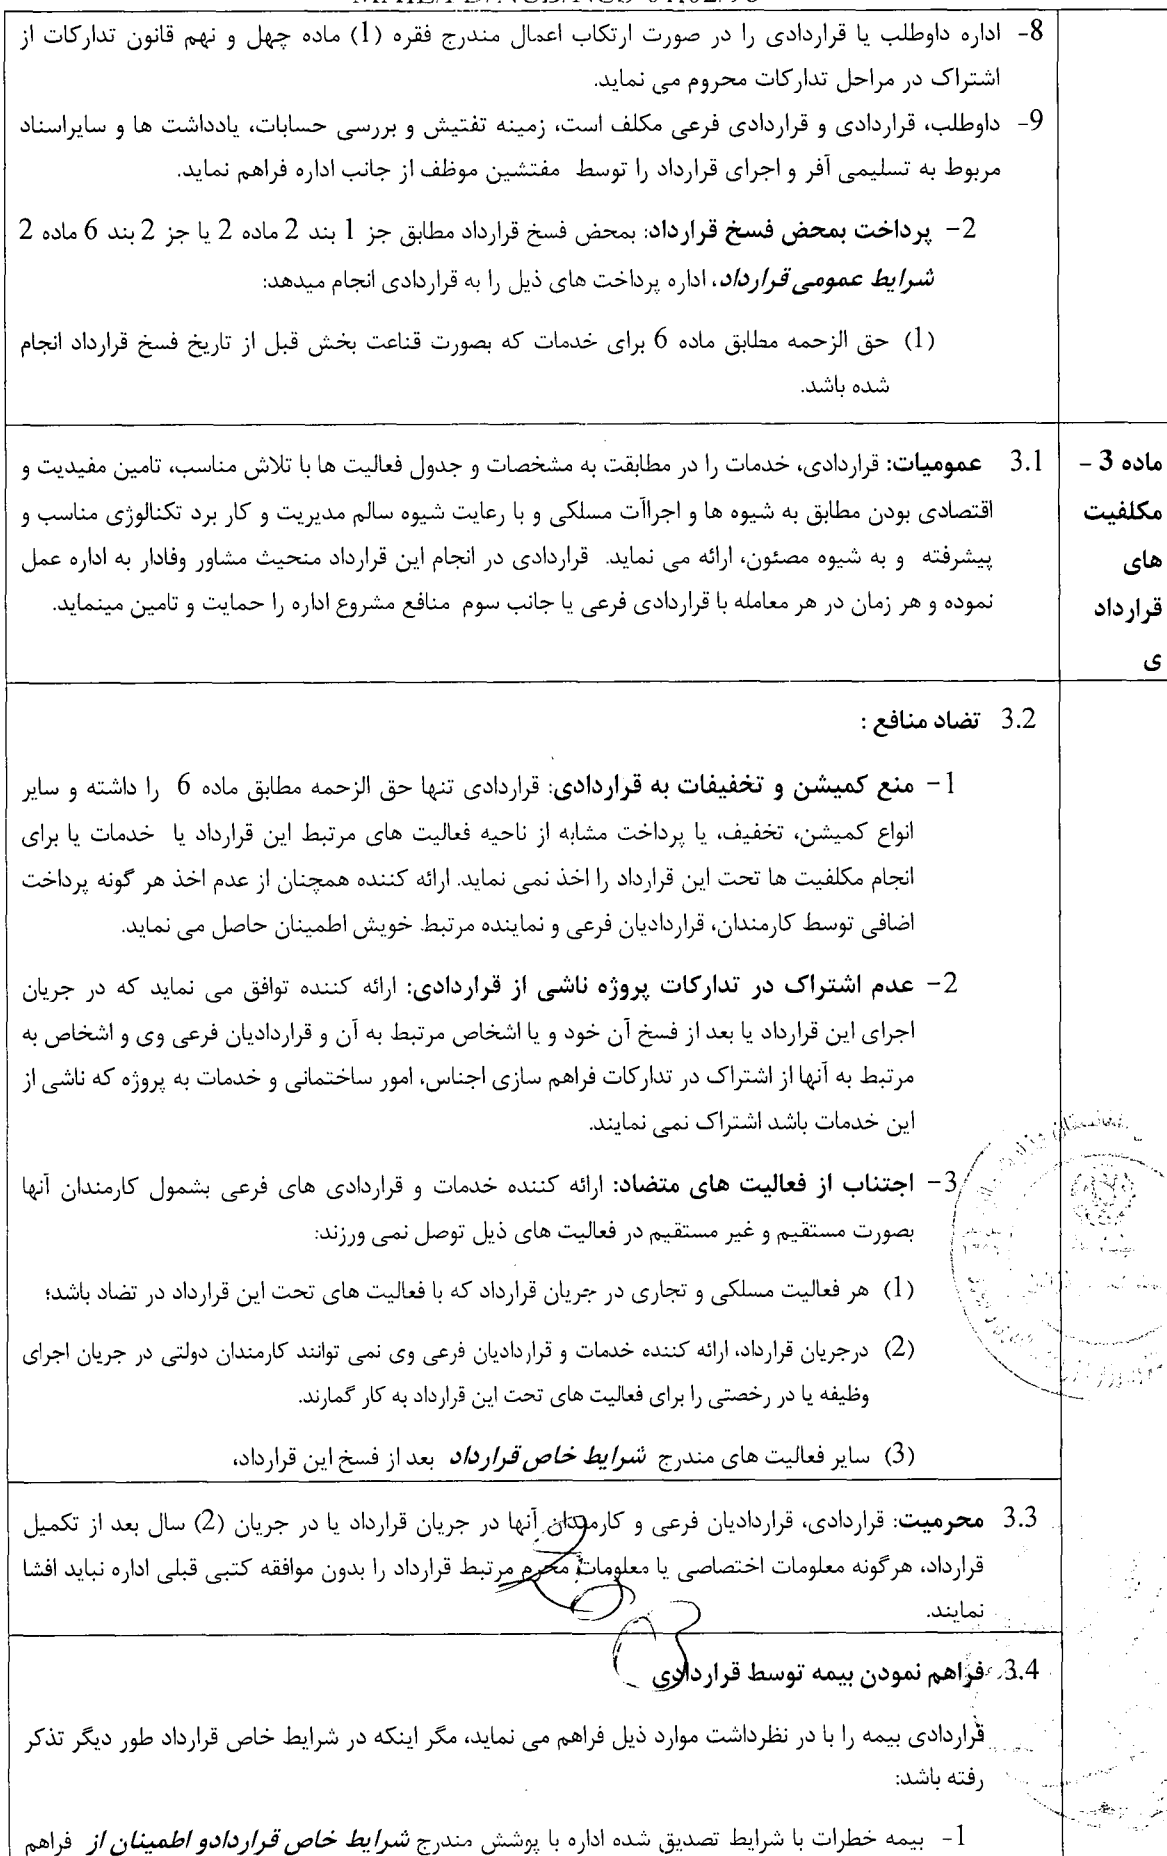 8- اداره داوطلب یا قراردادی را در صورت ارتکاب اعمال مندرج فقره (1) ماده چهل و نهم قانون تدارکات از
اشتراک در مراحل تدارکات محروم می نماید.
9- داوطلب، قراردادی و قراردادی فرعی مکلف است، زمینه تفتیش و بررسی حسابات، یادداشت ها و سایراسناد
مربوط به تسلیمی آفر و اجرای قرارداد را توسط مفتشین موظف از جانب اداره فراهم نماید.
2- پرداخت بمحض فسخ قرارداد: بمحض فسخ قرارداد مطابق جز 1 بند 2 ماده 2 یا جز 2 بند 6 ماده 2
شرایط عمومی قرارداد، اداره پرداخت های ذیل را به قراردادی انجام میدهد:
(1) حق الزحمه مطابق ماده 6 برای خدمات که بصورت قناعت بخش قبل از تاریخ فسخ قرارداد انجام
شده باشد.
ماده 3 -
مکلفیت
های
قرارداد
ی
3.1 عمومیات: قراردادی، خدمات را در مطابقت به مشخصات و جدول فعالیت ها با تلاش مناسب، تامین مفیدیت و
اقتصادی بودن مطابق به شیوه ها و اجراآت مسلکی و با رعایت شیوه سالم مدیریت و کار برد تکنالوژی مناسب و
پیشرفته و به شیوه مصئون، ارائه می نماید. قراردادی در انجام این قرارداد منحیث مشاور وفادار به اداره عمل
نموده و هر زمان در هر معامله با قراردادی فرعی یا جانب سوم منافع مشروع اداره را حمایت و تامین مینماید.
3.2 تضاد منافع :
1- منع کمیشن و تخفیفات به قراردادی: قراردادی تنها حق الزحمه مطابق ماده 6 را داشته و سایر
انواع کمیشن، تخفیف، یا پرداخت مشابه از ناحیه فعالیت های مرتبط این قرارداد یا خدمات یا برای
انجام مکلفیت ها تحت این قرارداد را اخذ نمی نماید. ارائه کننده همچنان از عدم اخذ هر گونه پرداخت
اضافی توسط کارمندان، قراردادیان فرعی و نماینده مرتبط خویش اطمینان حاصل می نماید.
2- عدم اشتراک در تدارکات پروژه ناشی از قراردادی: ارائه کننده توافق می نماید که در جریان
اجرای این قرارداد یا بعد از فسخ آن خود و یا اشخاص مرتبط به آن و قراردادیان فرعی وی و اشخاص به
مرتبط به آنها از اشتراک در تدارکات فراهم سازی اجناس، امور ساختمانی و خدمات به پروژه که ناشی از
این خدمات باشد اشتراک نمی نمایند.
3- اجتناب از فعالیت های متضاد: ارائه کننده خدمات و قراردادی های فرعی بشمول کارمندان آنها
بصورت مستقیم و غیر مستقیم در فعالیت های ذیل توصل نمی ورزند:
(1) هر فعالیت مسلکی و تجاری در جریان قرارداد که با فعالیت های تحت این قرارداد در تضاد باشد؛
(2) درجریان قرارداد، ارائه کننده خدمات و قراردادیان فرعی وی نمی توانند کارمندان دولتی در جریان اجرای
وظیفه یا در رخصتی را برای فعالیت های تحت این قرارداد به کار گمارند.
(3) سایر فعالیت های مندرج شرایط خاص قرارداد بعد از فسخ این قرارداد،
3.3 محرمیت: قراردادی، قراردادیان فرعی و کارمندان آنها در جریان قرارداد یا در جریان (2) سال بعد از تکمیل
قرارداد، هرگونه معلومات اختصاصی یا معلومات محرم مرتبط قرارداد را بدون موافقه کتبی قبلی اداره نباید افشا
نمایند.
3.4 فراهم نمودن بیمه توسط قراردادی
قراردادی بیمه را با در نظرداشت موارد ذیل فراهم می نماید، مگر اینکه در شرایط خاص قرارداد طور دیگر تذکر
رفته باشد:
1- بیمه خطرات با شرایط تصدیق شده اداره با پوشش مندرج شرایط خاص قراردادو اطمینان از فراهم